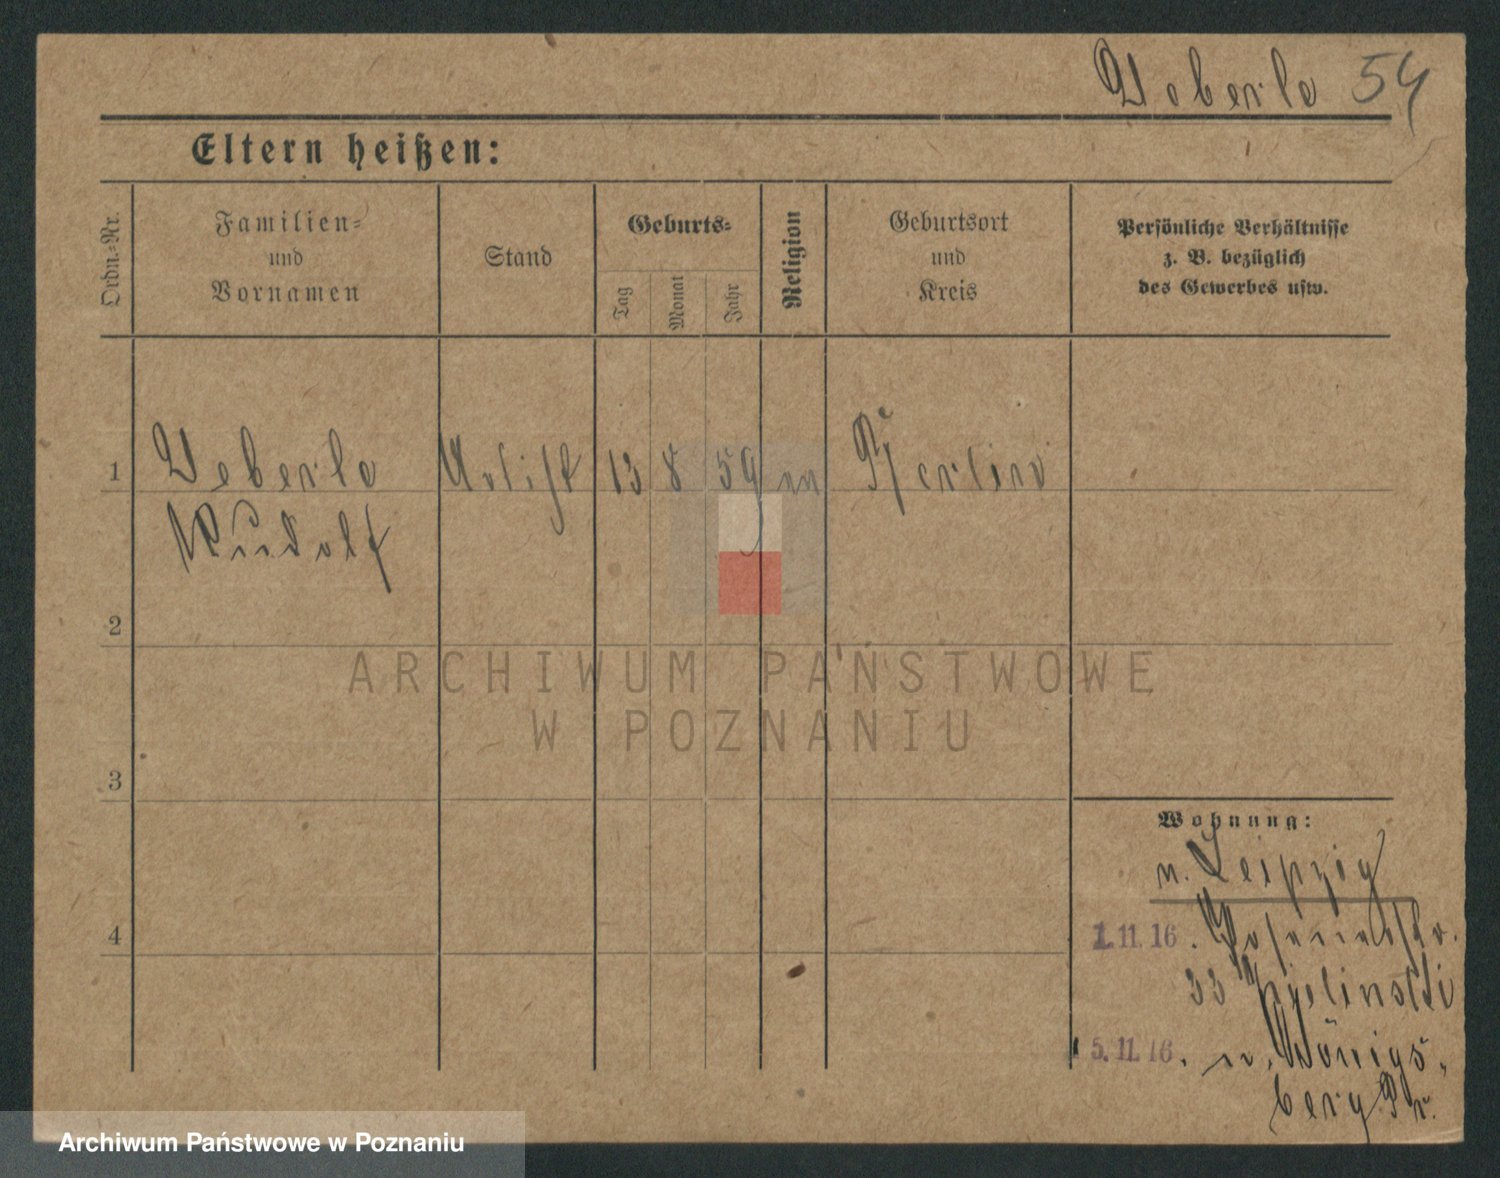 Ueberle 54
Eltern heißen:
Ordn.-Nr.
Familien-
und
Vornamen
Stand
Geburts-
Tag
Monat
Jahr
Religion
Geburtsort
und
Kreis
Persönliche Verhältnisse
z. B. bezüglich
des Gewerbes usw.
1 Ueberle Artist 13 8 59 Berlin
Rudolf
2
3
4
ARCHIWUM PAŃSTWOWE
W POZNANIU
Wohnung:
n. Leipzig
1.11.16.
33
5.11.16. n. Königs-
berg Pr.
Archiwum Państwowe w Poznaniu